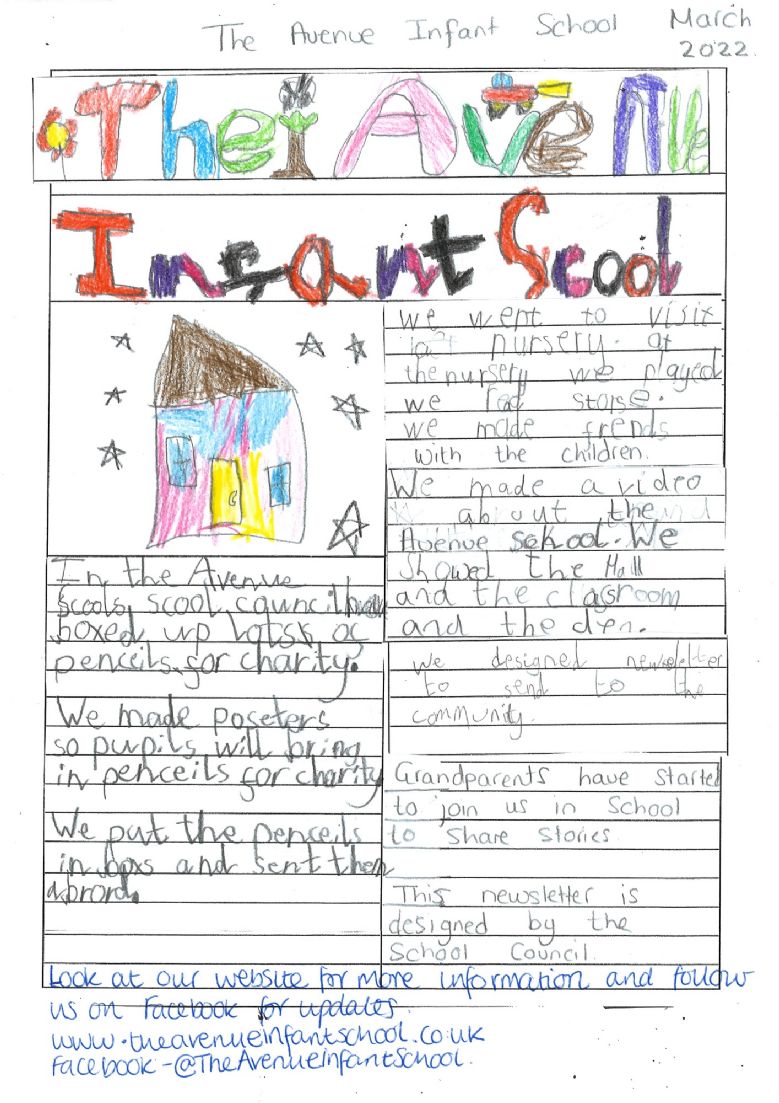 The Avenue Infant School March
2022.
The Avenue
Infant Scool
In the Avenue
Scools, scool council have
boxed up lotsk of
penceils for charity.
We made poseters
so pupils will bring
in penceils for charity
We put the penceils
in boxs and sent them
abrord.
we went to visit
nursery. at
the nursery we played
we red storse.
we made frends
with the children.
We made a video
about the
Avenue school. We
showed the Hall
and the clasroom
and the den.
we designed newseletter
to send to the
community.
Grandparents have started
to join us in School
to share stories.
This newsletter is
designed by the
School Council.
Look at our website for more information and follow
us on Facebook for updates.
www.theavenueinfantschool.co.uk
Facebook - @TheAvenueInfantSchool.